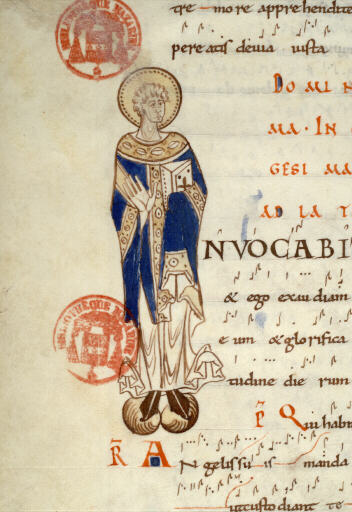 tre more apprehendite
pereatis deuia iusta
DOMIN
MA·IN
GESI MA
AD LA T
NVOCABI
& ego exaudiam
eum & glorifica
tudine dierum
℟ Qui habi
℟ A
Ngelis suis manda
ut custodiant te
BIBLIOTHEQUE MAZARIN
BIBLIOTHEQUE